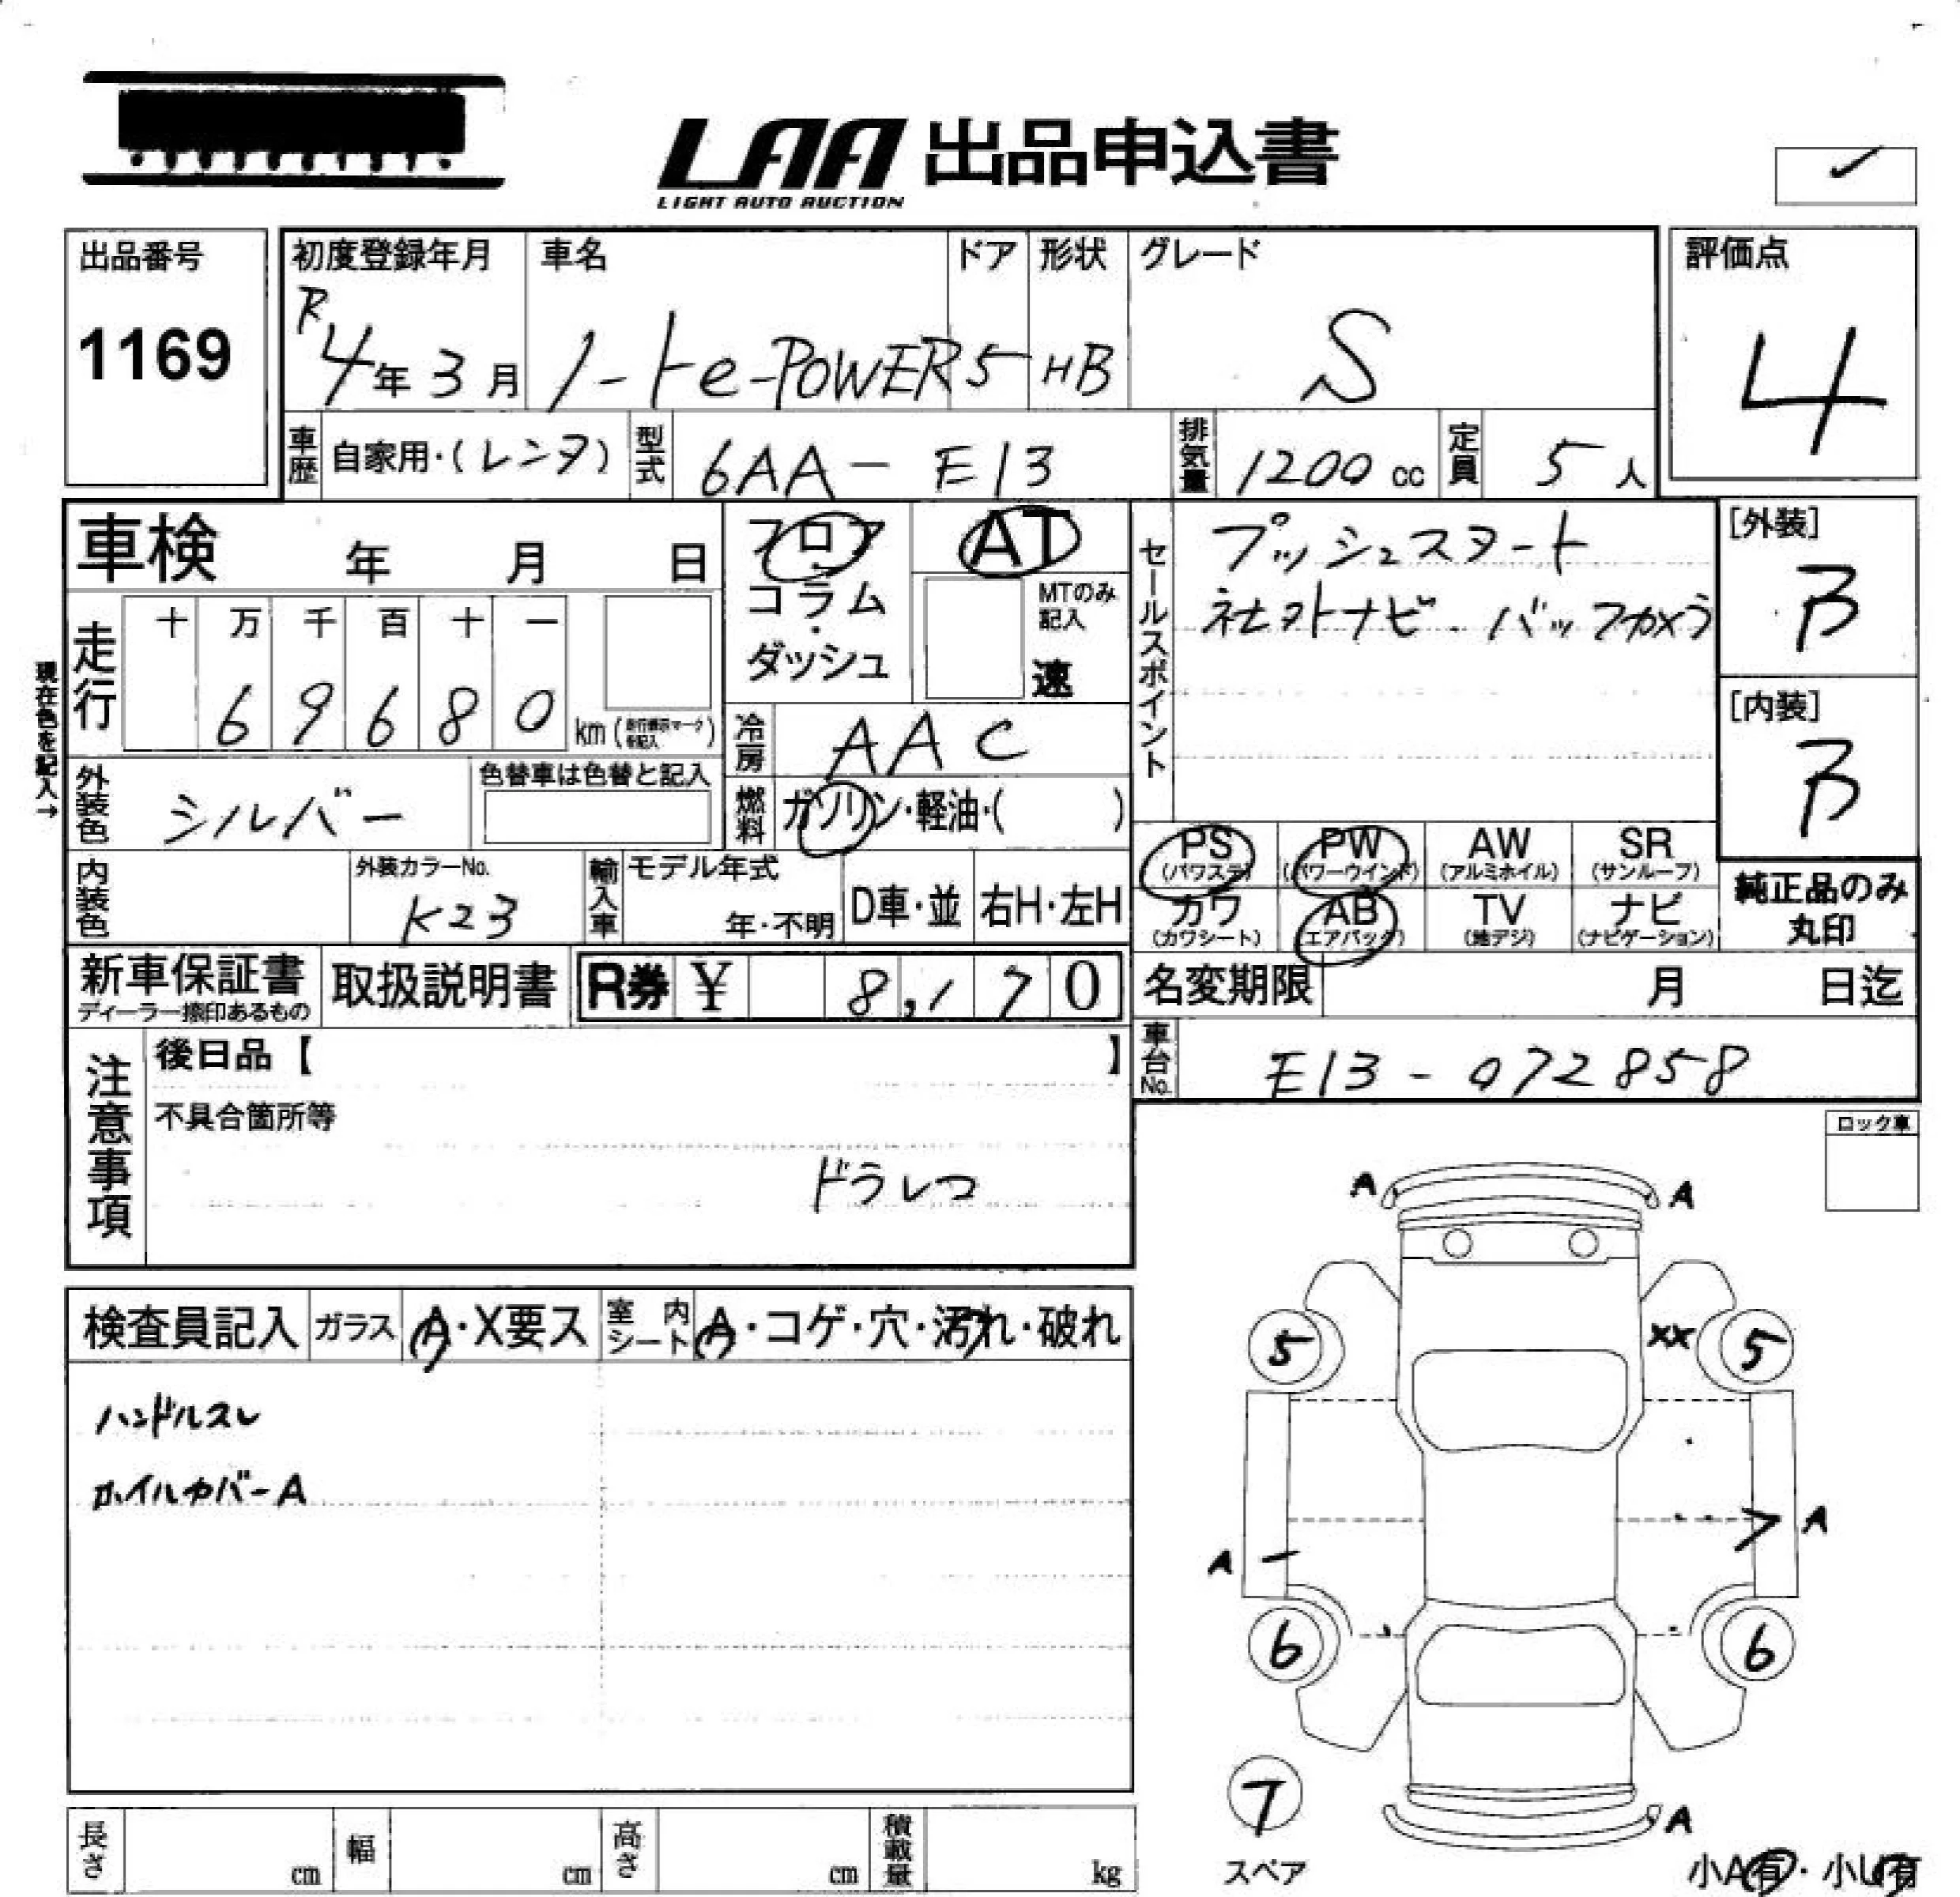 LAA 出品申込書
LIGHT AUTO AUCTION
出品番号
1169
初度登録年月
R4年3月
車名
ノートe-POWER
ドア
5
形状
HB
グレード
S
評価点
4
車歴
自家用・(レンタ)
型式
6AA-E13
排気量
1200cc
定員
5人
車検 年 月 日
フロア
コラム
・
ダッシュ
AT
MTのみ
記入
速
セールスポイント
プッシュスタート
社外ナビ・バックカメラ
[外装]
B
[内装]
B
現在色を記入→
走行
十 万 千 百 十 一
6 9 6 8 0
km(走行表示マークを記入)
冷房
AAC
外装色
シルバー
色替車は色替と記入
燃料
ガソリン・軽油・( )
PS
(パワステ)
PW
(パワーウインド)
AW
(アルミホイル)
SR
(サンルーフ)
カワ
(カワシート)
AB
(エアバック)
TV
(地デジ)
ナビ
(ナビゲーション)
純正品のみ
丸印
内装色
外装カラーNo.
K23
輸入車
モデル年式
年・不明
D車・並
右H・左H
新車保証書
ディーラー捺印あるもの
取扱説明書
R券 ¥ 8,170
名変期限 月 日迄
車台No.
E13-072858
注意事項
後日品【 】
不具合箇所等
ドラレコ
ロック車
検査員記入
ガラス
A・X要ス
室内シート
A・コゲ・穴・汚れ・破れ
ハンドルスレ
ホイルカバーA
A A
5 XX 5
A
A
6 6
7
スペア
A
小A有・小U有
長さ cm
幅 cm
高さ cm
積載量 kg